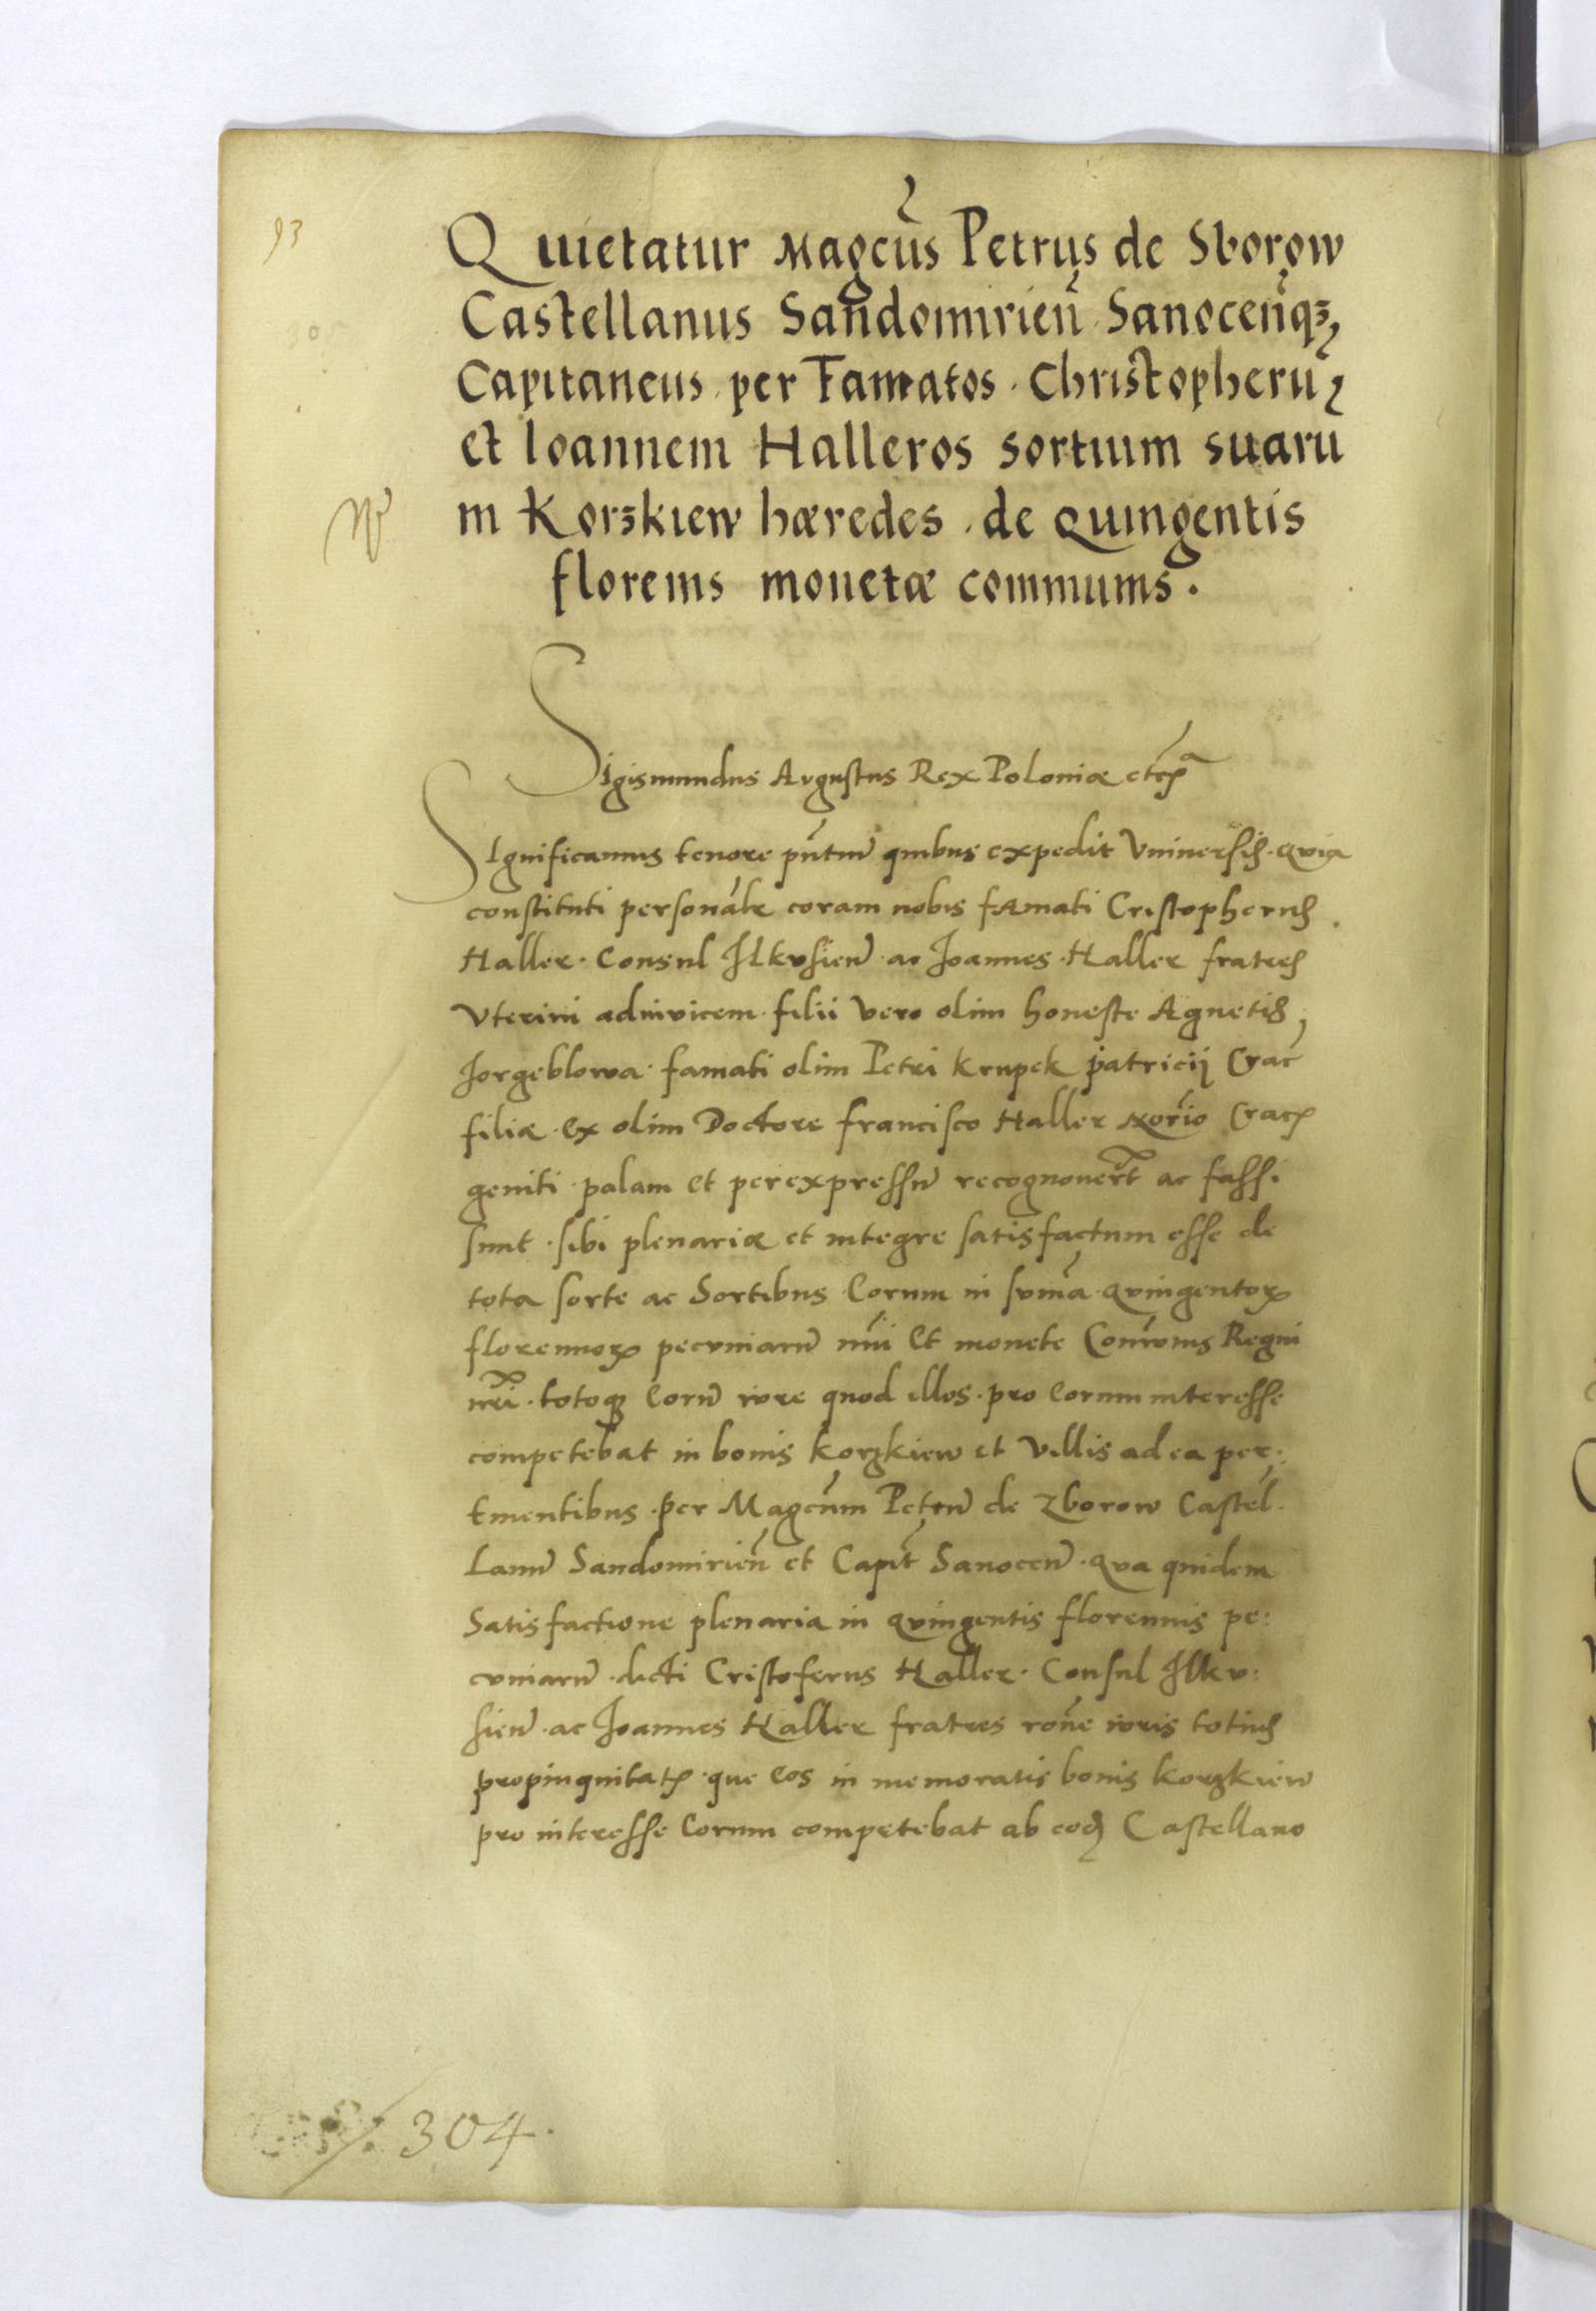 93
Quietatur Magcūs Petrus de Sborow
Castellanus Sandomirień Sanoceńq3
Capitaneus per Famatos Christopherū
et Ioannem Halleros sortium suarū
in Korzkiew hæredes de Quingentis
florenis monetæ communis.
Sigismundus Avgustus Rex Poloniæ etc̃
Significamus tenore pñtiū quibus expedit Vniversis. Qvia
constituti personalr̃ coram nobis famati Cristopherus
Haller. Consul Ilkvsieñ ac Joannes Haller fratres
Vterini adinvicem filii vero olim honeste Agnetis
Jorgeblowa famati olim Petri Krupek patricij Crac̃
filiæ ex olim Doctore francisco Haller Crac̃
geniti palam et per expressū recognouer̃t ac fassi
sunt sibi plenariæ et integre satisfactum esse de
tota sorte ac Sortibus Eorum in sum̃a qvingentorꝝ
florennorꝝ pecvniarū nũi Et monete Com̃vnis Regni
nr̃i. totoqꝫ Eorū ivre quod illos pro Eorum interesse
competebat in bonis Korzkiew et Villis ad ea per:
tinentibus per Magcũm Petrū de Zborow Castel:
Lanū Sandomirieñ et Capit̃ Sanoceñ. Qva quidem
Satisfactione plenaria in qvingentis florennis pe:
cvniarū dicti Cristoferus Haller. Consul Ilkv:
sieñ ac Joannes Haller fratres rõne ivris totius
propinquitatꝭ que Eos in memoratis bonis Korzkiew
pro interesse Eorum competebat ab eodꝫ Castellano
304.